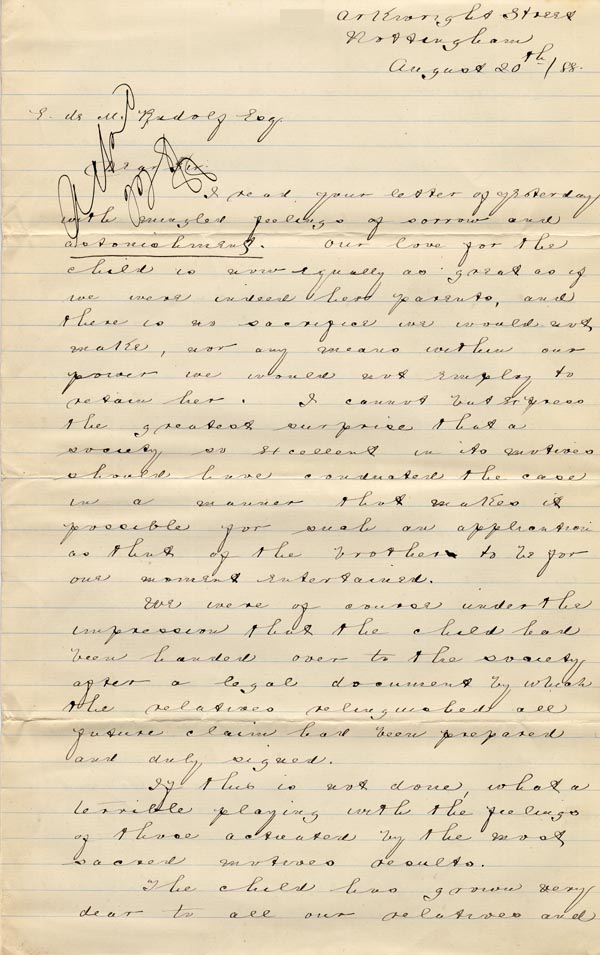 Arkwright Street
Nottingham
August 20th/88.
E. de M. Rudolf Esq.
Dear Sir
I read your letter of yesterday
with mingled feelings of sorrow and
astonishment. Our love for the
child is now equally as great as if
we were indeed her parents, and
there is no sacrifice we would not
make, nor any means within our
power we would not employ to
retain her. I cannot but express
the greatest surprise that a
society so excellent in its motives
should have conducted the case
in a manner that makes it
possible for such an application
as that of the brother to be for
one moment entertained.
We were of course under the
impression that the child had
been handed over to the society
after a legal document by which
the relatives relinquished all
future claim had been prepared
and duly signed.
If this is not done, what a
terrible playing with the feelings
of those actuated by the most
sacred motives results.
The child has grown very
dear to all our relatives and